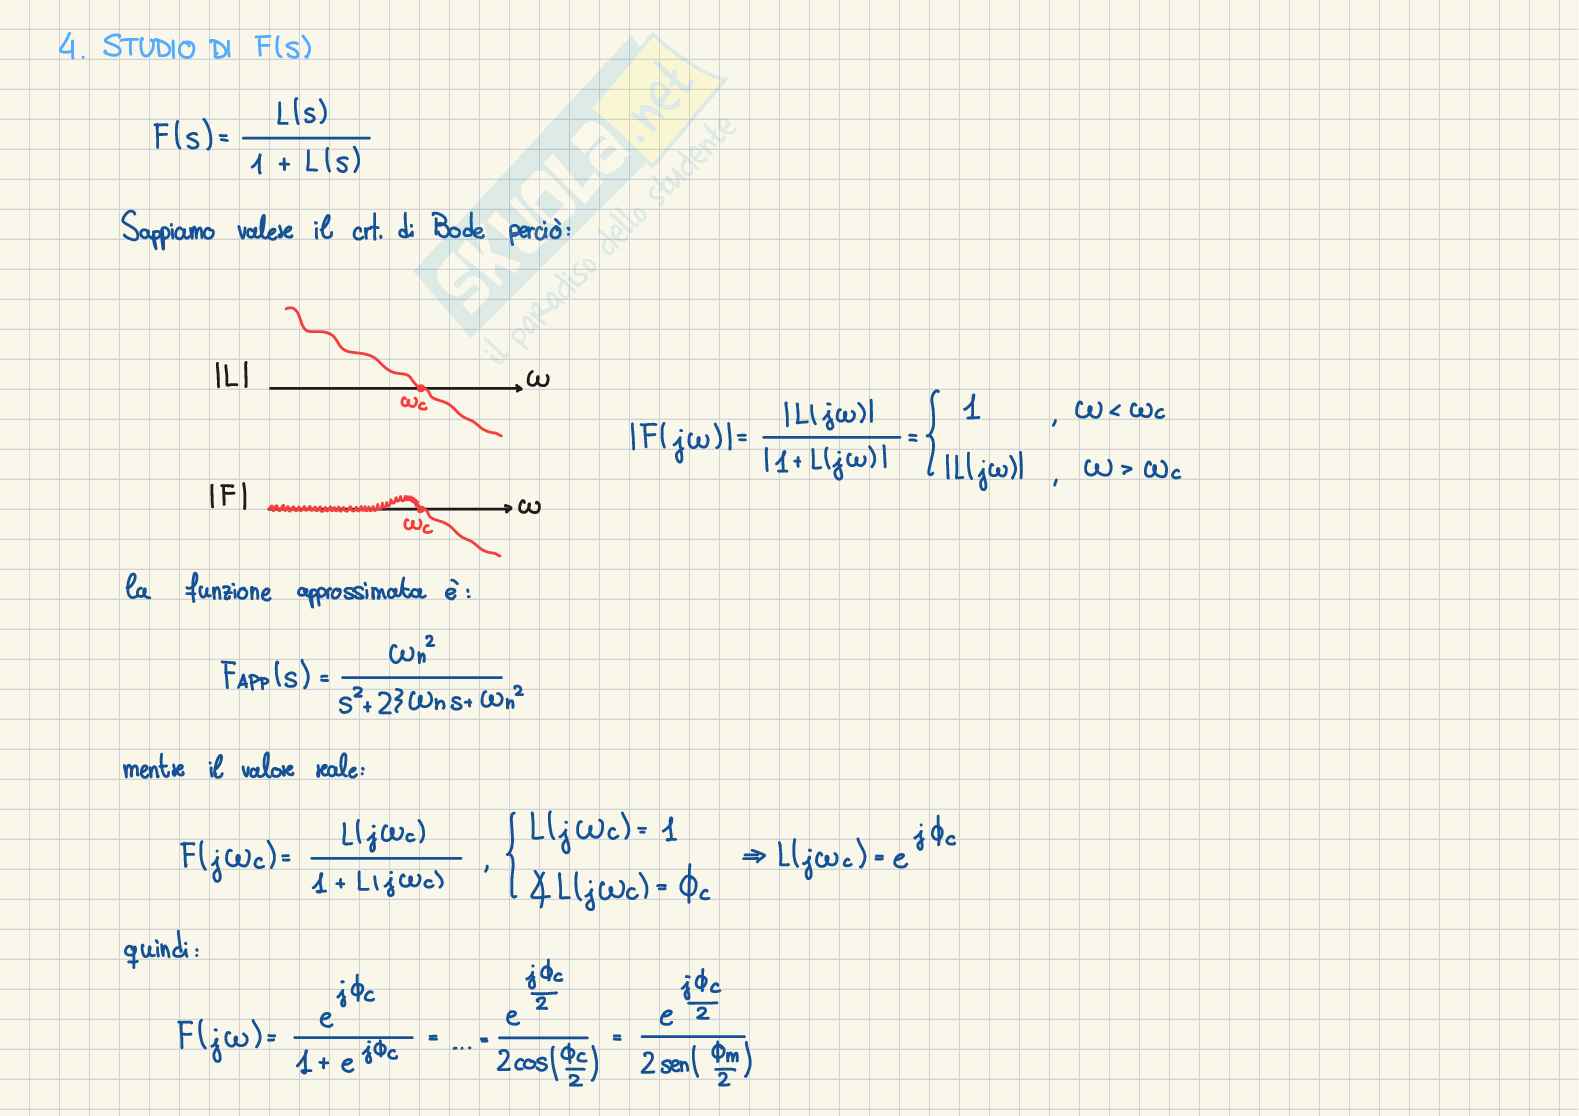 4. STUDIO DI F(s)
F(s) = L(s) / 1 + L(s)
Sappiamo valere il crt. di Bode perciò:
|L| ω
ωc
|F(jω)| = |L(jω)| / |1 + L(jω)| = { 1 , ω < ωc
|L(jω)| , ω > ωc
|F| ω
ωc
la funzione approssimata è:
FAPP(s) = ωn² / s² + 2ξωn s + ωn²
mentre il valore reale:
F(jωc) = L(jωc) / 1 + L(jωc) , { L(jωc) = 1
∡L(jωc) = ϕc
⇒ L(jωc) = e^jϕc
quindi:
F(jω) = e^jϕc / 1 + e^jϕc = ... = e^jϕc/2 / 2cos(ϕc/2) = e^jϕc/2 / 2sen(ϕm/2)
SKUOLA.net
il paradiso dello studente